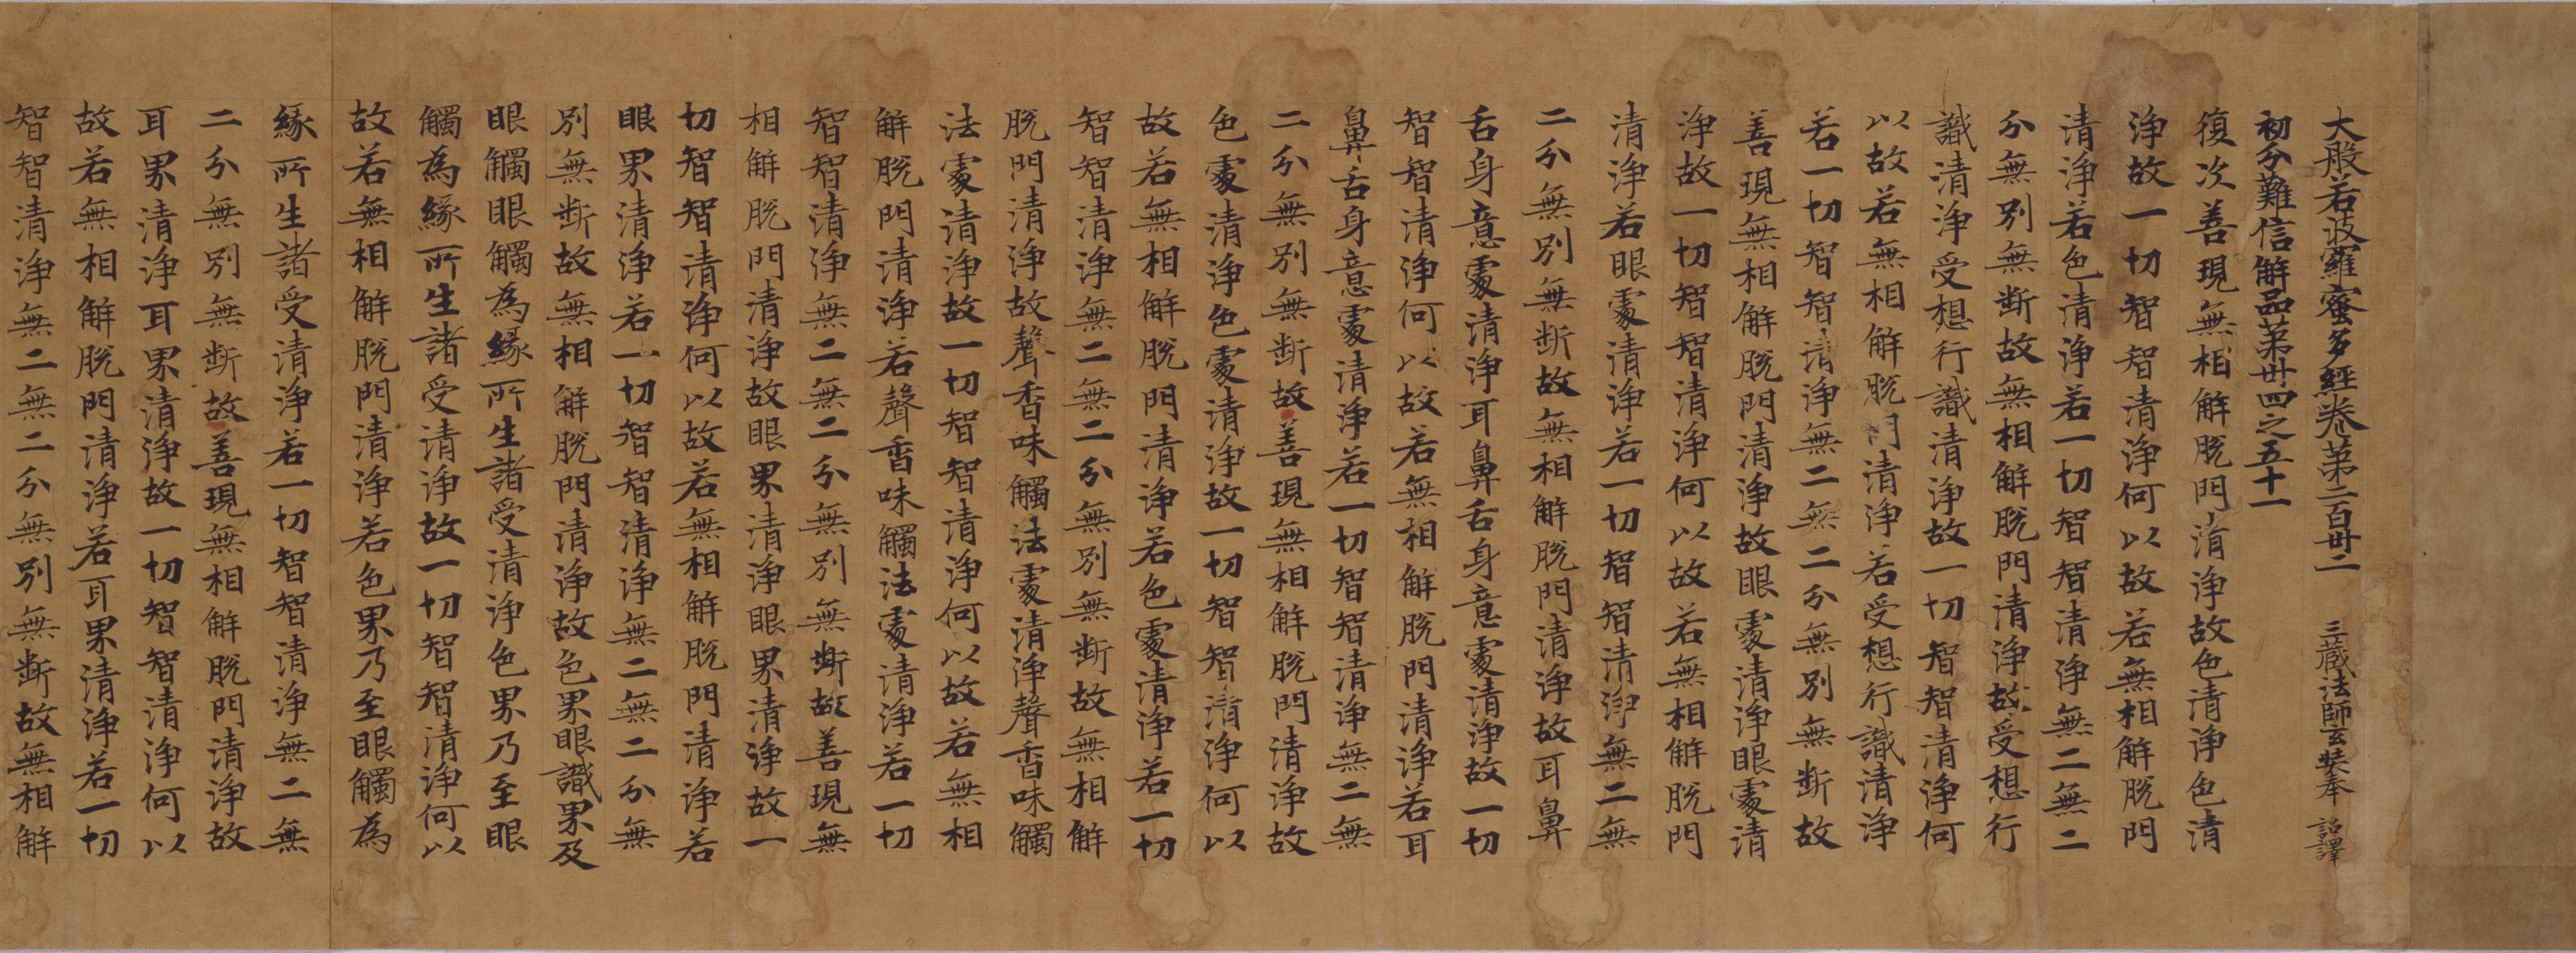 大般若波羅蜜多經卷第二百卅二　三藏法師玄奘奉　詔譯
初分難信解品第卅四之五十一
復次善現無相解脫門清淨故色清淨色清
淨故一切智智清淨何以故若無相解脫門
清淨若色清淨若一切智智清淨無二無二
分無別無斷故無相解脫門清淨故受想行
識清淨受想行識清淨故一切智智清淨何
以故若無相解脫門清淨若受想行識清淨
若一切智智清淨無二無二分無別無斷故
善現無相解脫門清淨故眼處清淨眼處清
淨故一切智智清淨何以故若無相解脫門
清淨若眼處清淨若一切智智清淨無二無
二分無別無斷故無相解脫門清淨故耳鼻
舌身意處清淨耳鼻舌身意處清淨故一切
智智清淨何以故若無相解脫門清淨若耳
鼻舌身意處清淨若一切智智清淨無二無
二分無別無斷故善現無相解脫門清淨故
色處清淨色處清淨故一切智智清淨何以
故若無相解脫門清淨若色處清淨若一切
智智清淨無二無二分無別無斷故無相解
脫門清淨故聲香味觸法處清淨聲香味觸
法處清淨故一切智智清淨何以故若無相
解脫門清淨若聲香味觸法處清淨若一切
智智清淨無二無二分無別無斷故善現無
相解脫門清淨故眼界清淨眼界清淨故一
切智智清淨何以故若無相解脫門清淨若
眼界清淨若一切智智清淨無二無二分無
別無斷故無相解脫門清淨故色界眼識界及
眼觸眼觸為緣所生諸受清淨色界乃至眼
觸為緣所生諸受清淨故一切智智清淨何以
故若無相解脫門清淨若色界乃至眼觸為
緣所生諸受清淨若一切智智清淨無二無
二分無別無斷故善現無相解脫門清淨故
耳界清淨耳界清淨故一切智智清淨何以
故若無相解脫門清淨若耳界清淨若一切
智智清淨無二無二分無別無斷故無相解